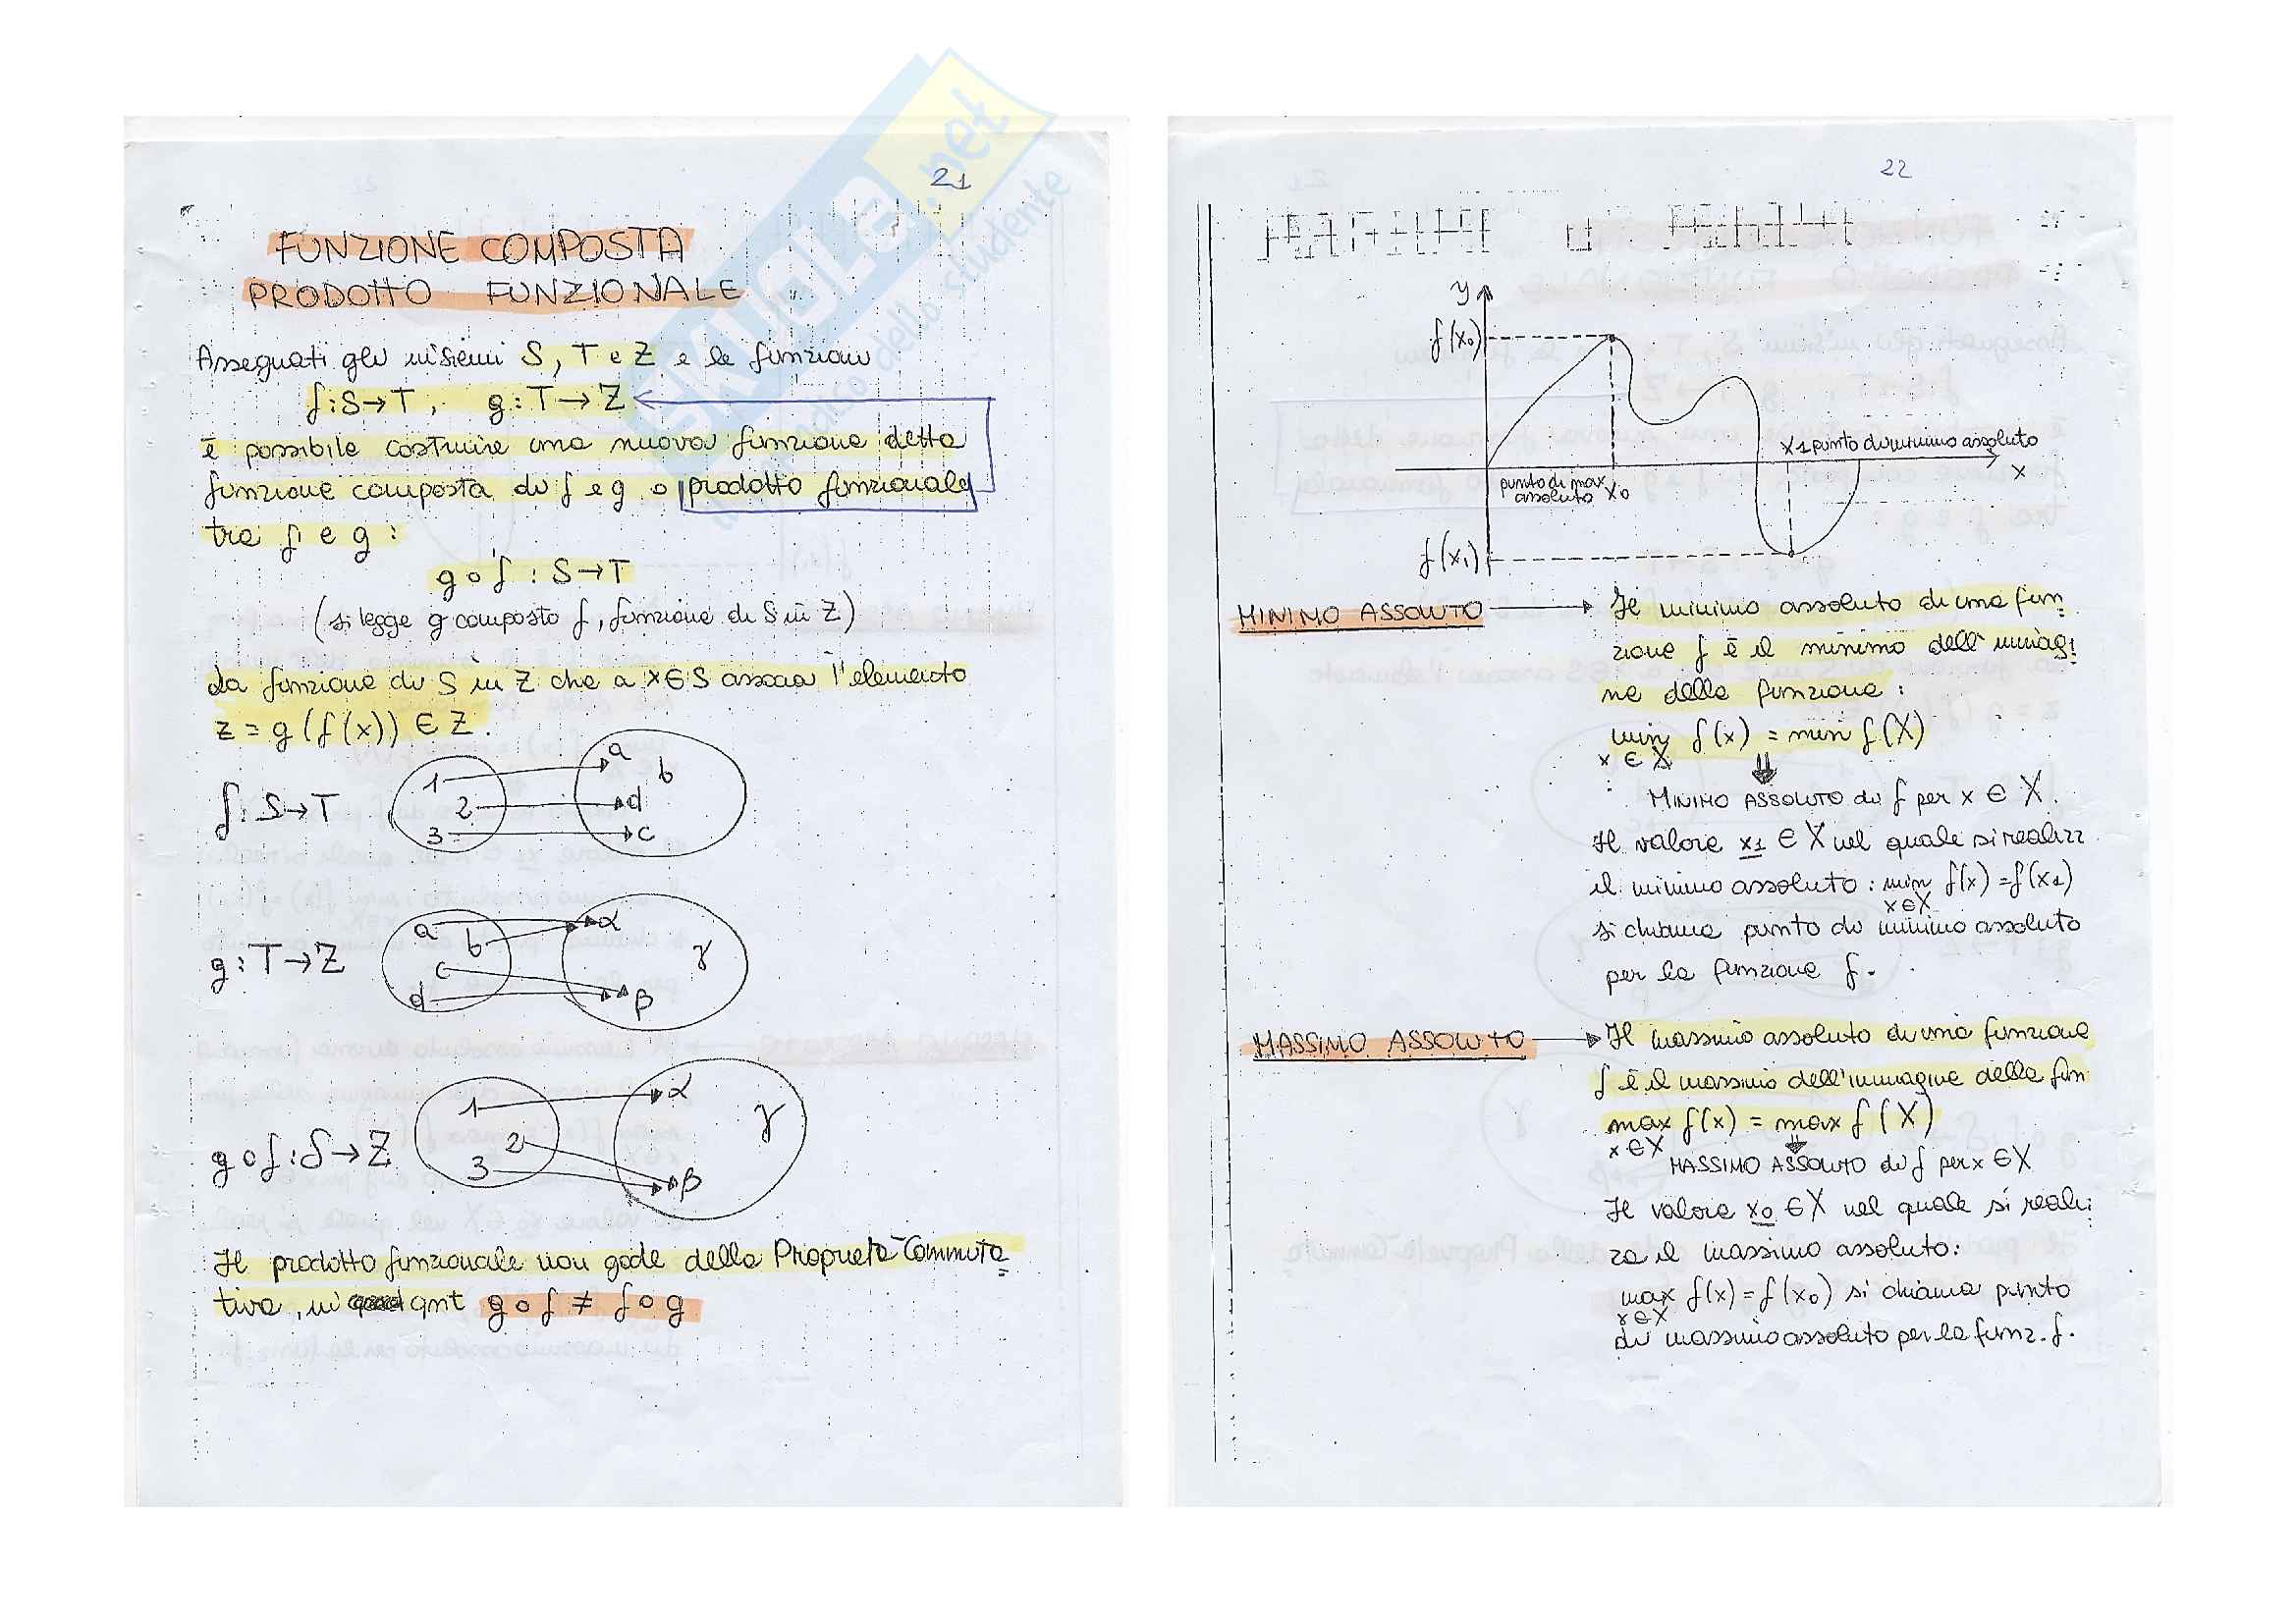 21
FUNZIONE COMPOSTA
PRODOTTO FUNZIONALE
Assegnati gli insiemi S, T e Z e le funzioni
f:S→T, g:T→Z
è possibile costruire una nuova funzione detta
funzione composta di f e g o prodotto funzionale
tra f e g:
g∘f : S→T
(si legge g composto f, funzione di S in Z)
la funzione di S in Z che a x∈S associa l'elemento
z = g(f(x)) ∈ Z.
f: S→T
1 2 3
a b d c
g: T→Z
a b c d
α γ β
g∘f: S→Z
1 2 3
α γ β
Il prodotto funzionale non gode della Proprietà Commuta
tiva, in qnt g∘f ≠ f∘g
22
y
f(x₀)
x1 punto di minimo assoluto
x
punto di max
assoluto x₀
f(x₁)
MINIMO ASSOLUTO → Il minimo assoluto di una fun
zione f è il minimo dell'immagi
ne della funzione:
min f(x) = min f(X)
x ∈ X ⇓
MINIMO ASSOLUTO di f per x ∈ X.
Il valore x1 ∈ X nel quale si realizz
il minimo assoluto: min f(x) = f(x1)
x∈X
si chiama punto di minimo assoluto
per la funzione f.
MASSIMO ASSOLUTO → Il massimo assoluto di una funzione
f è il massimo dell'immagine della fun
max f(x) = max f(X)
x∈X ⇓
MASSIMO ASSOLUTO di f per x ∈X
Il valore x0 ∈X nel quale si reali
za il massimo assoluto:
max f(x) = f(x₀) si chiama punto
x∈X
di massimo assoluto per la funz. f.
.net